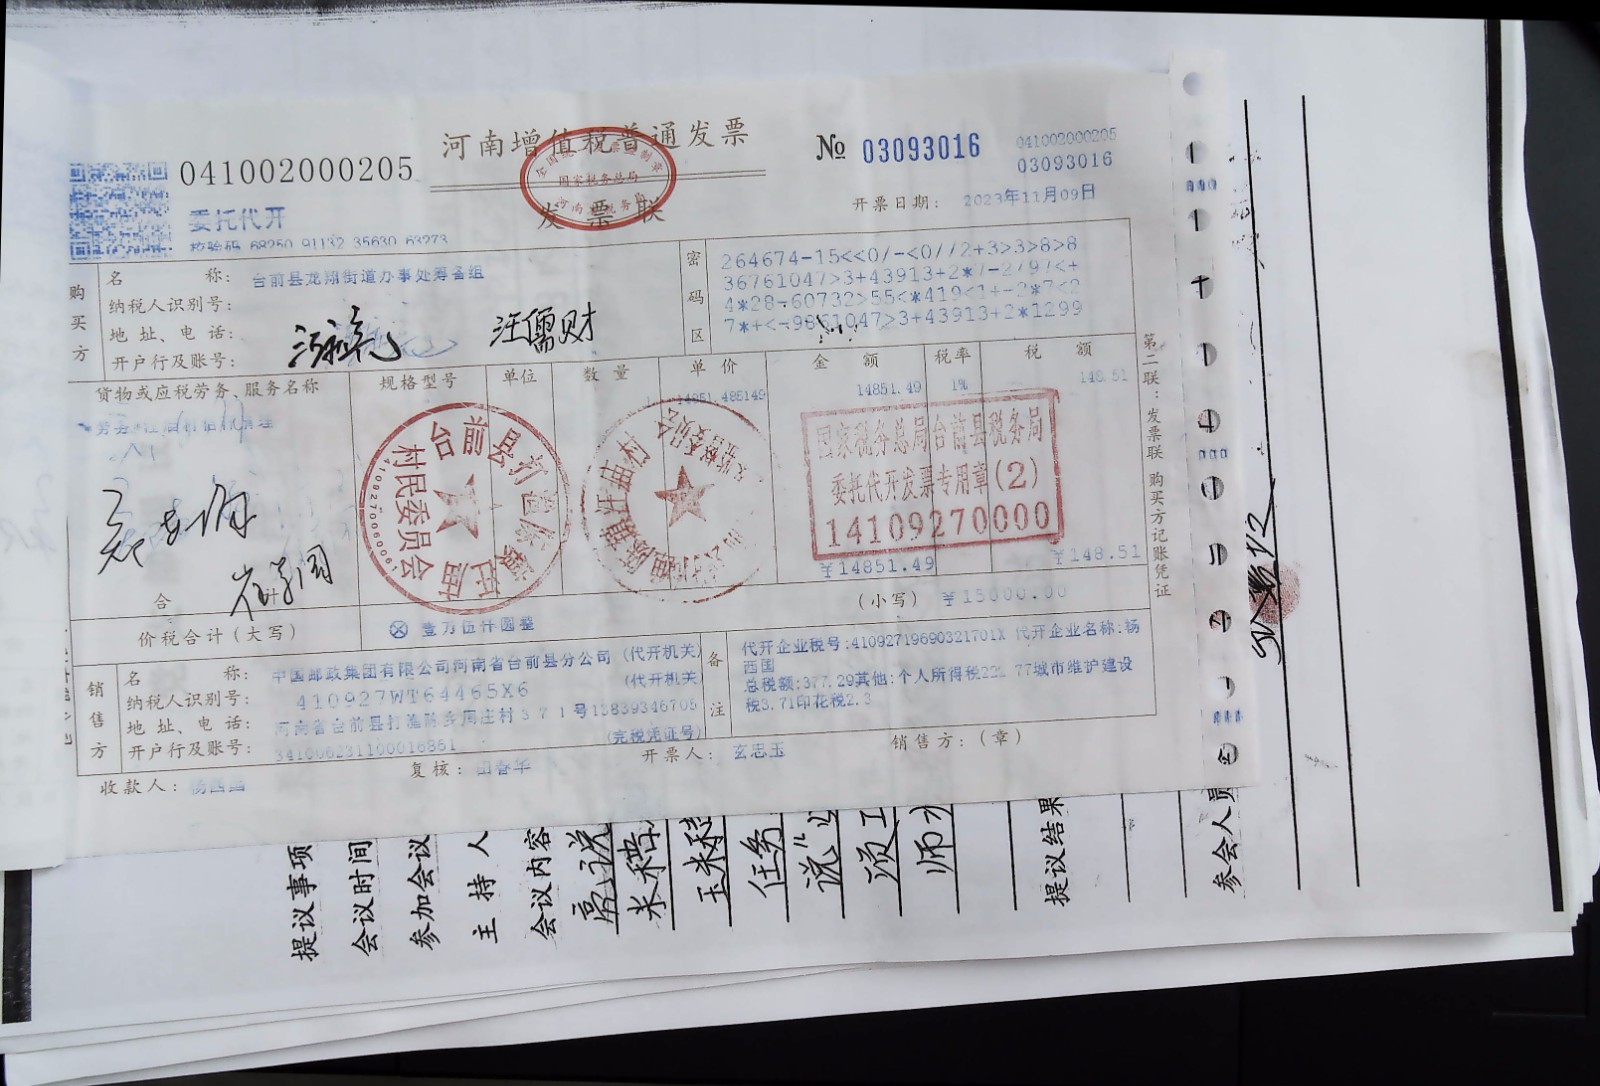 河南增值税普通发票
041002000205
No 03093016
041002000205
03093016
委托代开
发票联
开票日期: 2023年11月09日
校验码 68250 91132 35630 63273
购买方
名称: 台前县龙翔街道办事处筹备组
纳税人识别号:
地址、电话:
开户行及账号:
汪儒财
密码区
264674-15<<0/-<0//2+3>3>8>8
36761047>3+43913+2*7-2/97<+
4*28-60732>55<*419<1+-2*7<2
7*+<-9851047>3+43913+2*1299
货物或应税劳务、服务名称 规格型号 单位 数量 单价 金额 税率 税额
14851.485149 14851.49 1% 148.51
国家税务总局台前县税务局
委托代开发票专用章(2)
14109270000
合计 ¥14851.49 ¥148.51
价税合计(大写) ⊗壹万伍仟圆整 (小写) ¥15000.00
销售方
名称: 中国邮政集团有限公司河南省台前县分公司 (代开机关)
纳税人识别号: 410927WT64465X6 (代开机关
地址、电话: 河南省台前县打渔陈乡周庄村371号13839346705
开户行及账号: 341006231100016861 (完税凭证号)
备注
代开企业税号:41092719690321701X 代开企业名称:杨
西国
总税额:377.29其他:个人所得税222.77城市维护建设
税3.71印花税2.3
收款人: 杨西国 复核: 田春华 开票人: 玄忠玉 销售方:(章)
第二联:发票联 购买方记账凭证
台前县打渔陈镇汪庙
村民委员会
提议事项
会议时间
参加会议
主持人
会议内容
玉米秸
任务
提议结果
参会人员